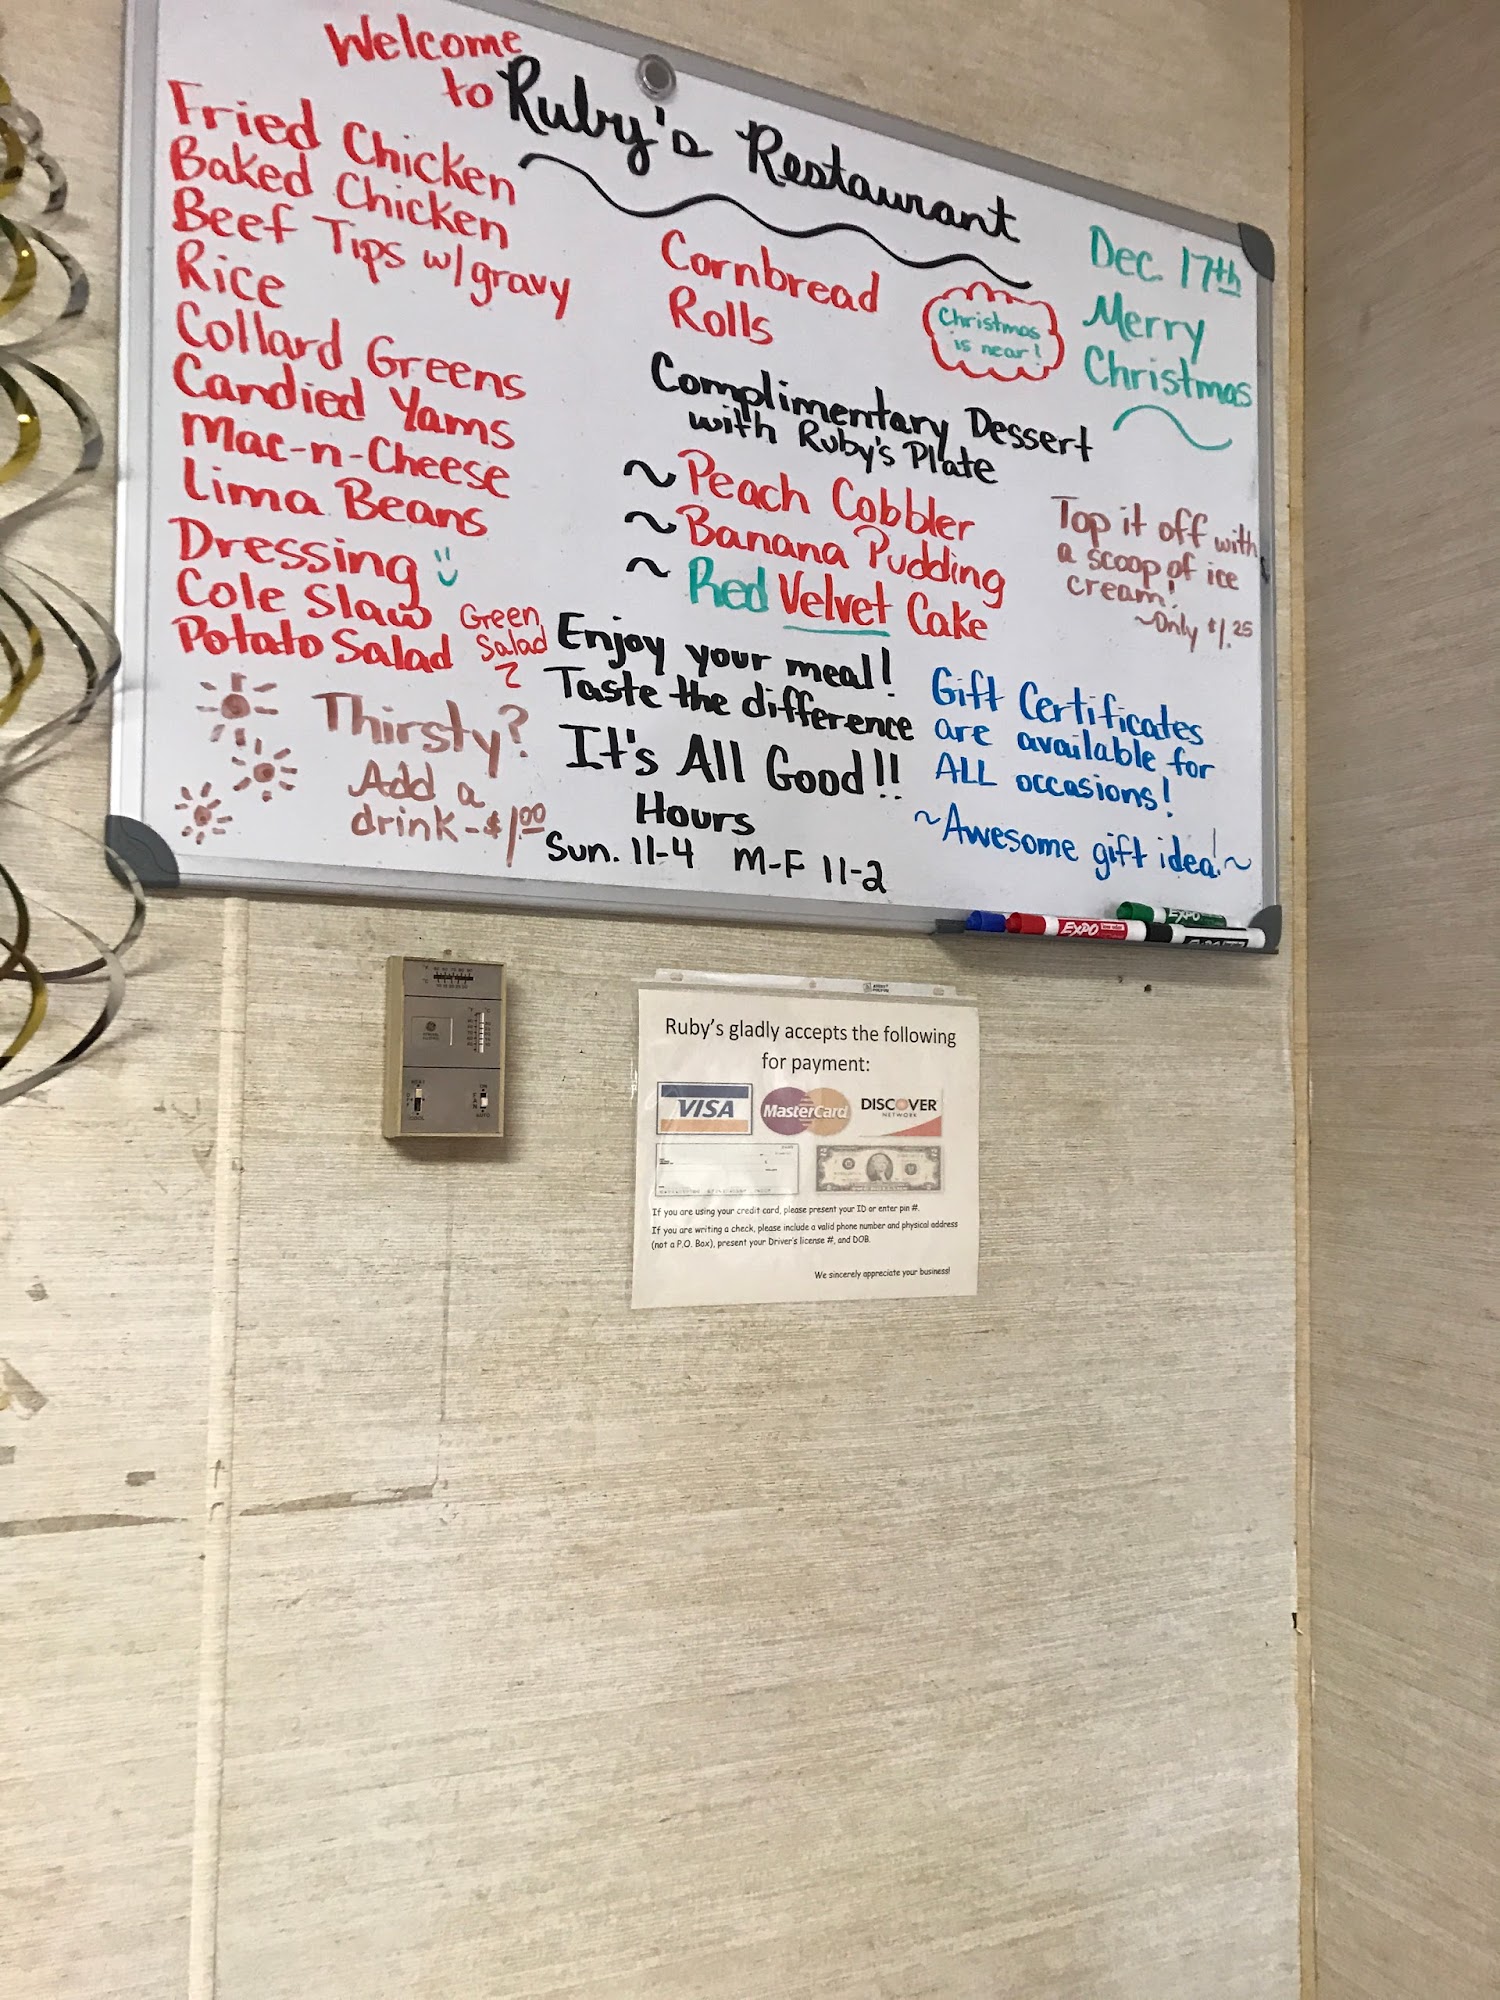 Welcome
to Ruby's Restaurant
Fried Chicken
Baked Chicken
Beef Tips w/gravy
Rice
Collard Greens
Candied Yams
Mac-n-Cheese
Lima Beans
Dressing
Cole Slaw
Potato Salad
Green
Salad
Thirsty?
Add a
drink - $1.00
Cornbread
Rolls
Christmas
is near!
Dec. 17th
Merry
Christmas
Complimentary Dessert
with Ruby's Plate
~ Peach Cobbler
~ Banana Pudding
~ Red Velvet Cake
Top it off with
a scoop of ice
cream!
~Only $1.25
Enjoy your meal!
Taste the difference
It's All Good!!
Hours
Sun. 11-4 M-F 11-2
Gift Certificates
are available for
ALL occasions!
~Awesome gift idea!~
EXPO
EXPO
Ruby's gladly accepts the following
for payment:
VISA MasterCard DISCOVER
NETWORK
If you are using your credit card, please present your ID or enter pin #.
If you are writing a check, please include a valid phone number and physical address
(not a P.O. Box), present your Driver's license #, and DOB.
We sincerely appreciate your business!